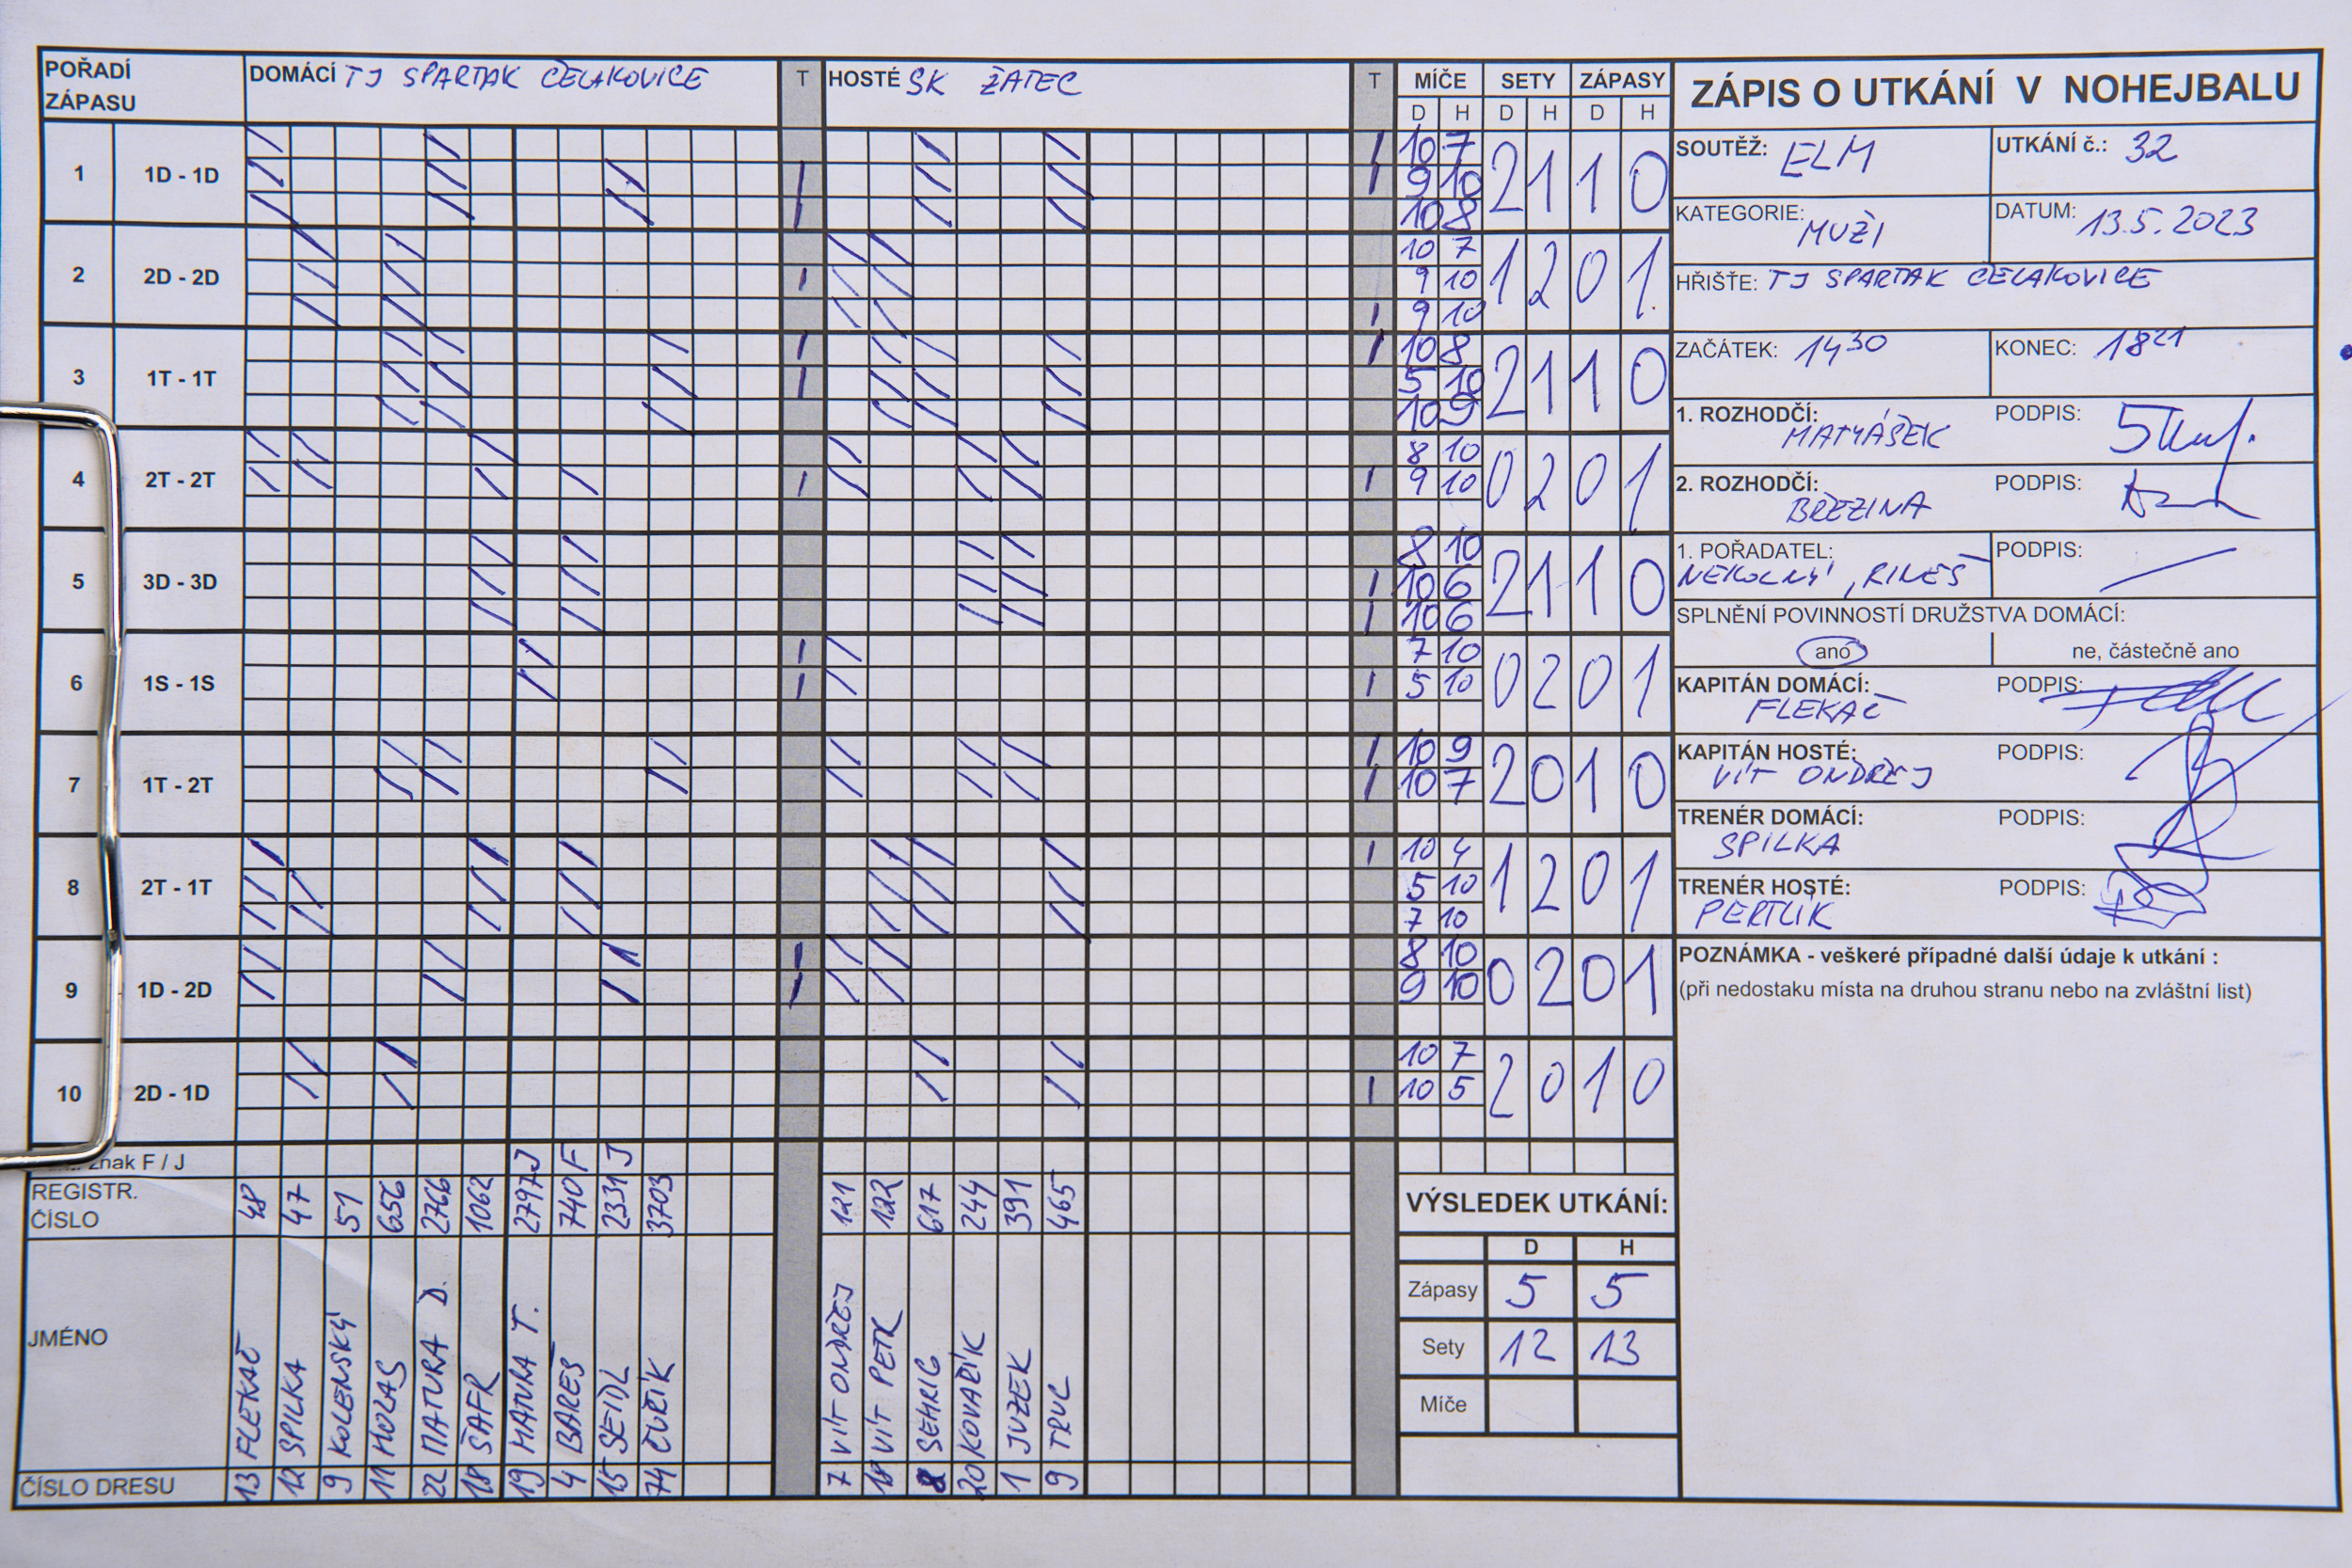 POŘADÍ ZÁPASU DOMÁCÍ TJ SPARTAK ČELAKOVICE T HOSTÉ SK ŽATEC T MÍČE SETY ZÁPASY
D H D H D H
ZÁPIS O UTKÁNÍ V NOHEJBALU
1 1D - 1D 10 7 2 1 1 0
9 10
10 8
2 2D - 2D 10 7 1 2 0 1
9 10
9 10
3 1T - 1T 10 8 2 1 1 0
5 10
10 9
4 2T - 2T 8 10 0 2 0 1
9 10
5 3D - 3D 8 10 2 1 1 0
10 6
10 6
6 1S - 1S 7 10 0 2 0 1
5 10
7 1T - 2T 10 9 2 0 1 0
10 7
8 2T - 1T 10 4 1 2 0 1
5 10
7 10
9 1D - 2D 8 10 0 2 0 1
9 10
10 2D - 1D 10 7 2 0 1 0
10 5
znak F / J J F J
REGISTR. ČÍSLO 48 47 51 656 2766 1062 2797 740 2331 3703 121 122 617 244 391 465
JMÉNO FLEKAČ SPILKA KOLENSKÝ HOLAS MATURA D. ŠAFR MATURA T. BAREŠ SEIDL ČUŘÍK VÍT ONDŘEJ VÍT PETR SEHRIG KOVAŘÍK JUZEK TRUC
ČÍSLO DRESU 13 12 9 11 22 18 19 4 15 74 7 18 8 20 1 9
SOUTĚŽ: ELM UTKÁNÍ č.: 32
KATEGORIE: MUŽI DATUM: 13.5.2023
HŘIŠTĚ: TJ SPARTAK ČELAKOVICE
ZAČÁTEK: 14 30 KONEC: 18 21
1. ROZHODČÍ: PODPIS:
MATYÁŠEK
2. ROZHODČÍ: PODPIS:
BŘEZINA
1. POŘADATEL: PODPIS:
NEKOLNÝ, RINEŠ
SPLNĚNÍ POVINNOSTÍ DRUŽSTVA DOMÁCÍ:
ano ne, částečně ano
KAPITÁN DOMÁCÍ: PODPIS:
FLEKAČ
KAPITÁN HOSTÉ: PODPIS:
VÍT ONDŘEJ
TRENÉR DOMÁCÍ: PODPIS:
SPILKA
TRENÉR HOSTÉ: PODPIS:
PERTLÍK
POZNÁMKA - veškeré případné další údaje k utkání :
(při nedostaku místa na druhou stranu nebo na zvláštní list)
VÝSLEDEK UTKÁNÍ:
D H
Zápasy 5 5
Sety 12 13
Míče